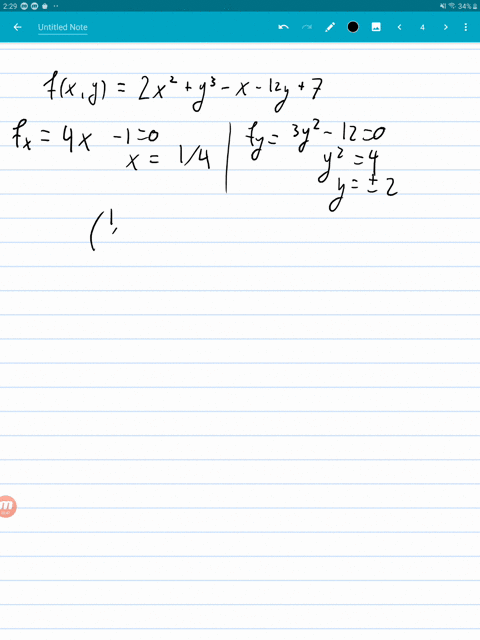 2:29 34%
Untitled Note 4
f(x,y) = 2x² + y³ - x - 12y + 7
fx = 4x - 1 = 0
x = 1/4
fy = 3y² - 12 = 0
y² = 4
y = ± 2
(1/